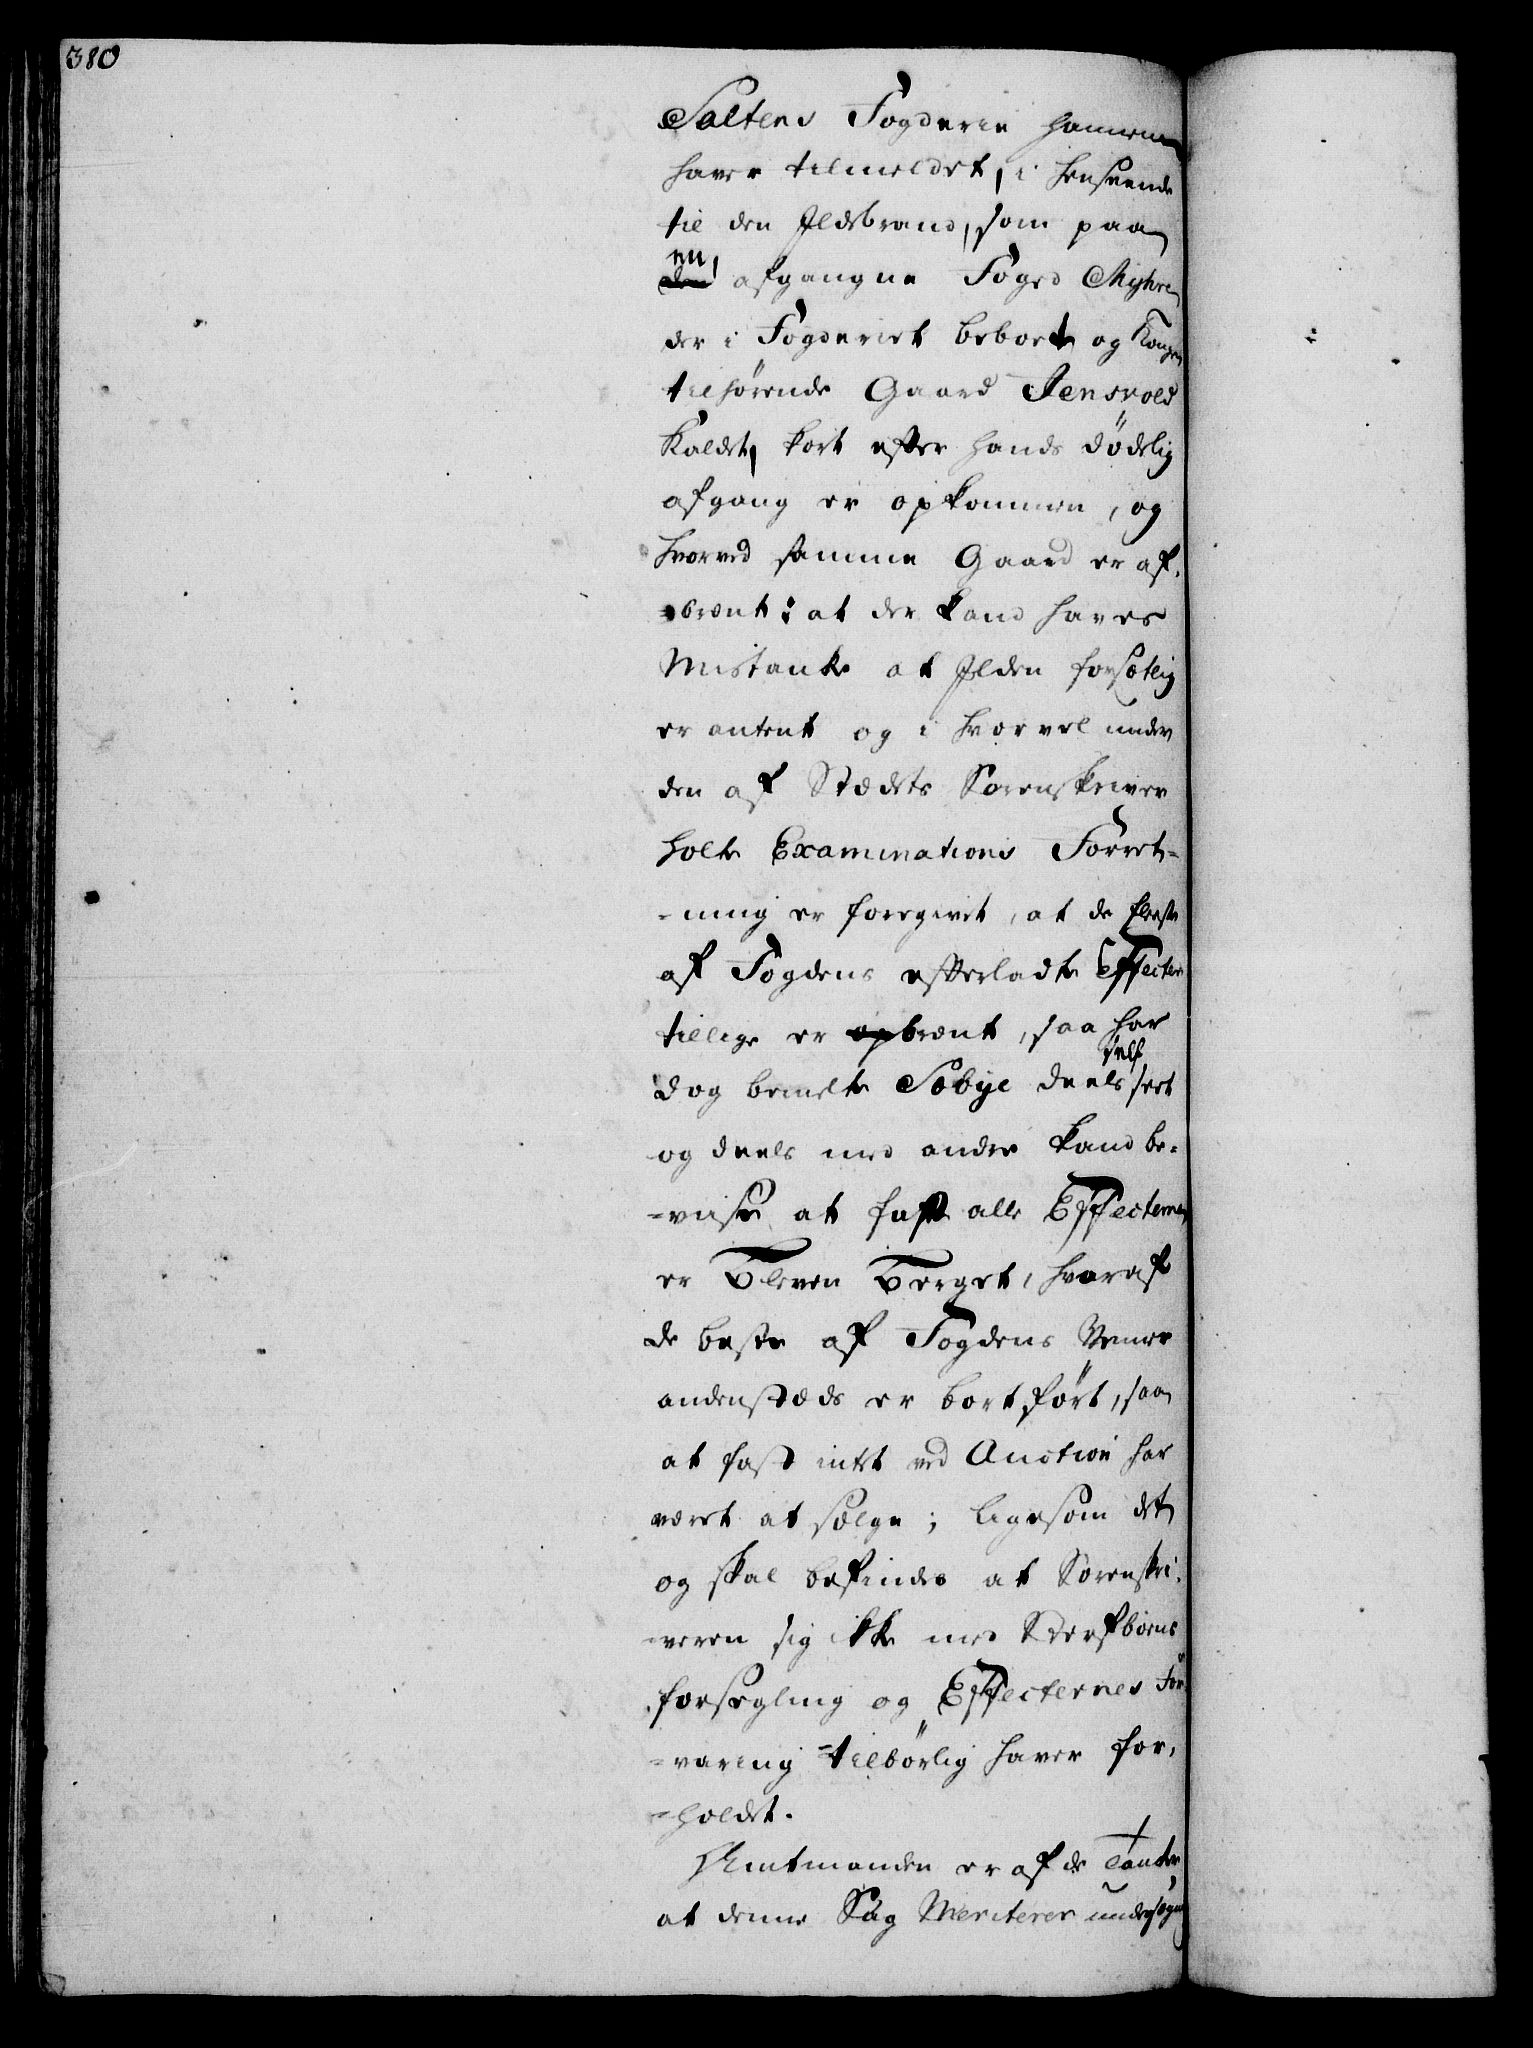 380
Saltens Fogderie hannem
haver tilmeldet, i henseende
til den Ildebrand, som paa
en, afgangne Foged Myhre
der i Fogderiet beboet og Kongen
tilhørende Gaard Jensvold
kaldet, kort efter hands dødelig
afgang er opkommen, og
hvorved samme Gaard er af-
brænt: at der kand haves
Mistanke at Ilden forsætlig
er antent og i hvorvel under
den af Stædets Sorenskriver
holte Examinations Forret-
-ning er foregivet, at de fleeste
af Fogdens efterladte Effecter
tillige er opbrænt, saa har
dog bemelte Søbye deels self seet
og deels med andre kand be-
-viise at fast alle Effecterne
er bleven berget, hvoraf
de beste af Fogdens Venner
andenstæds er bortført, saa
at fast intet ved Auction har
været at sælge; ligesom det
og skal befindes at Sorenskri-
-veren sig ikke med Sterfboens
forsegling og Effecternes For-
-varing tilbørlig haver for-
-holdet.
Amtmanden er af de Tancker
at denne Sag Meriterer undersøgning